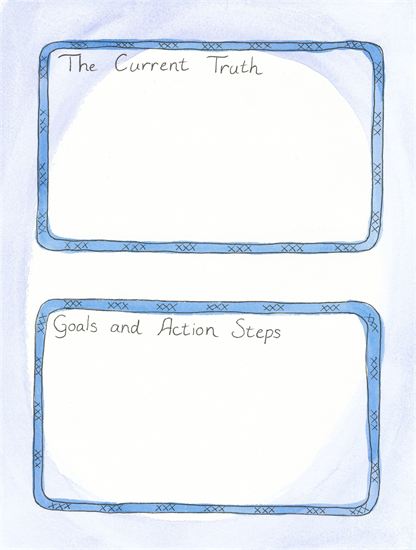 The Current Truth
Goals and Action Steps